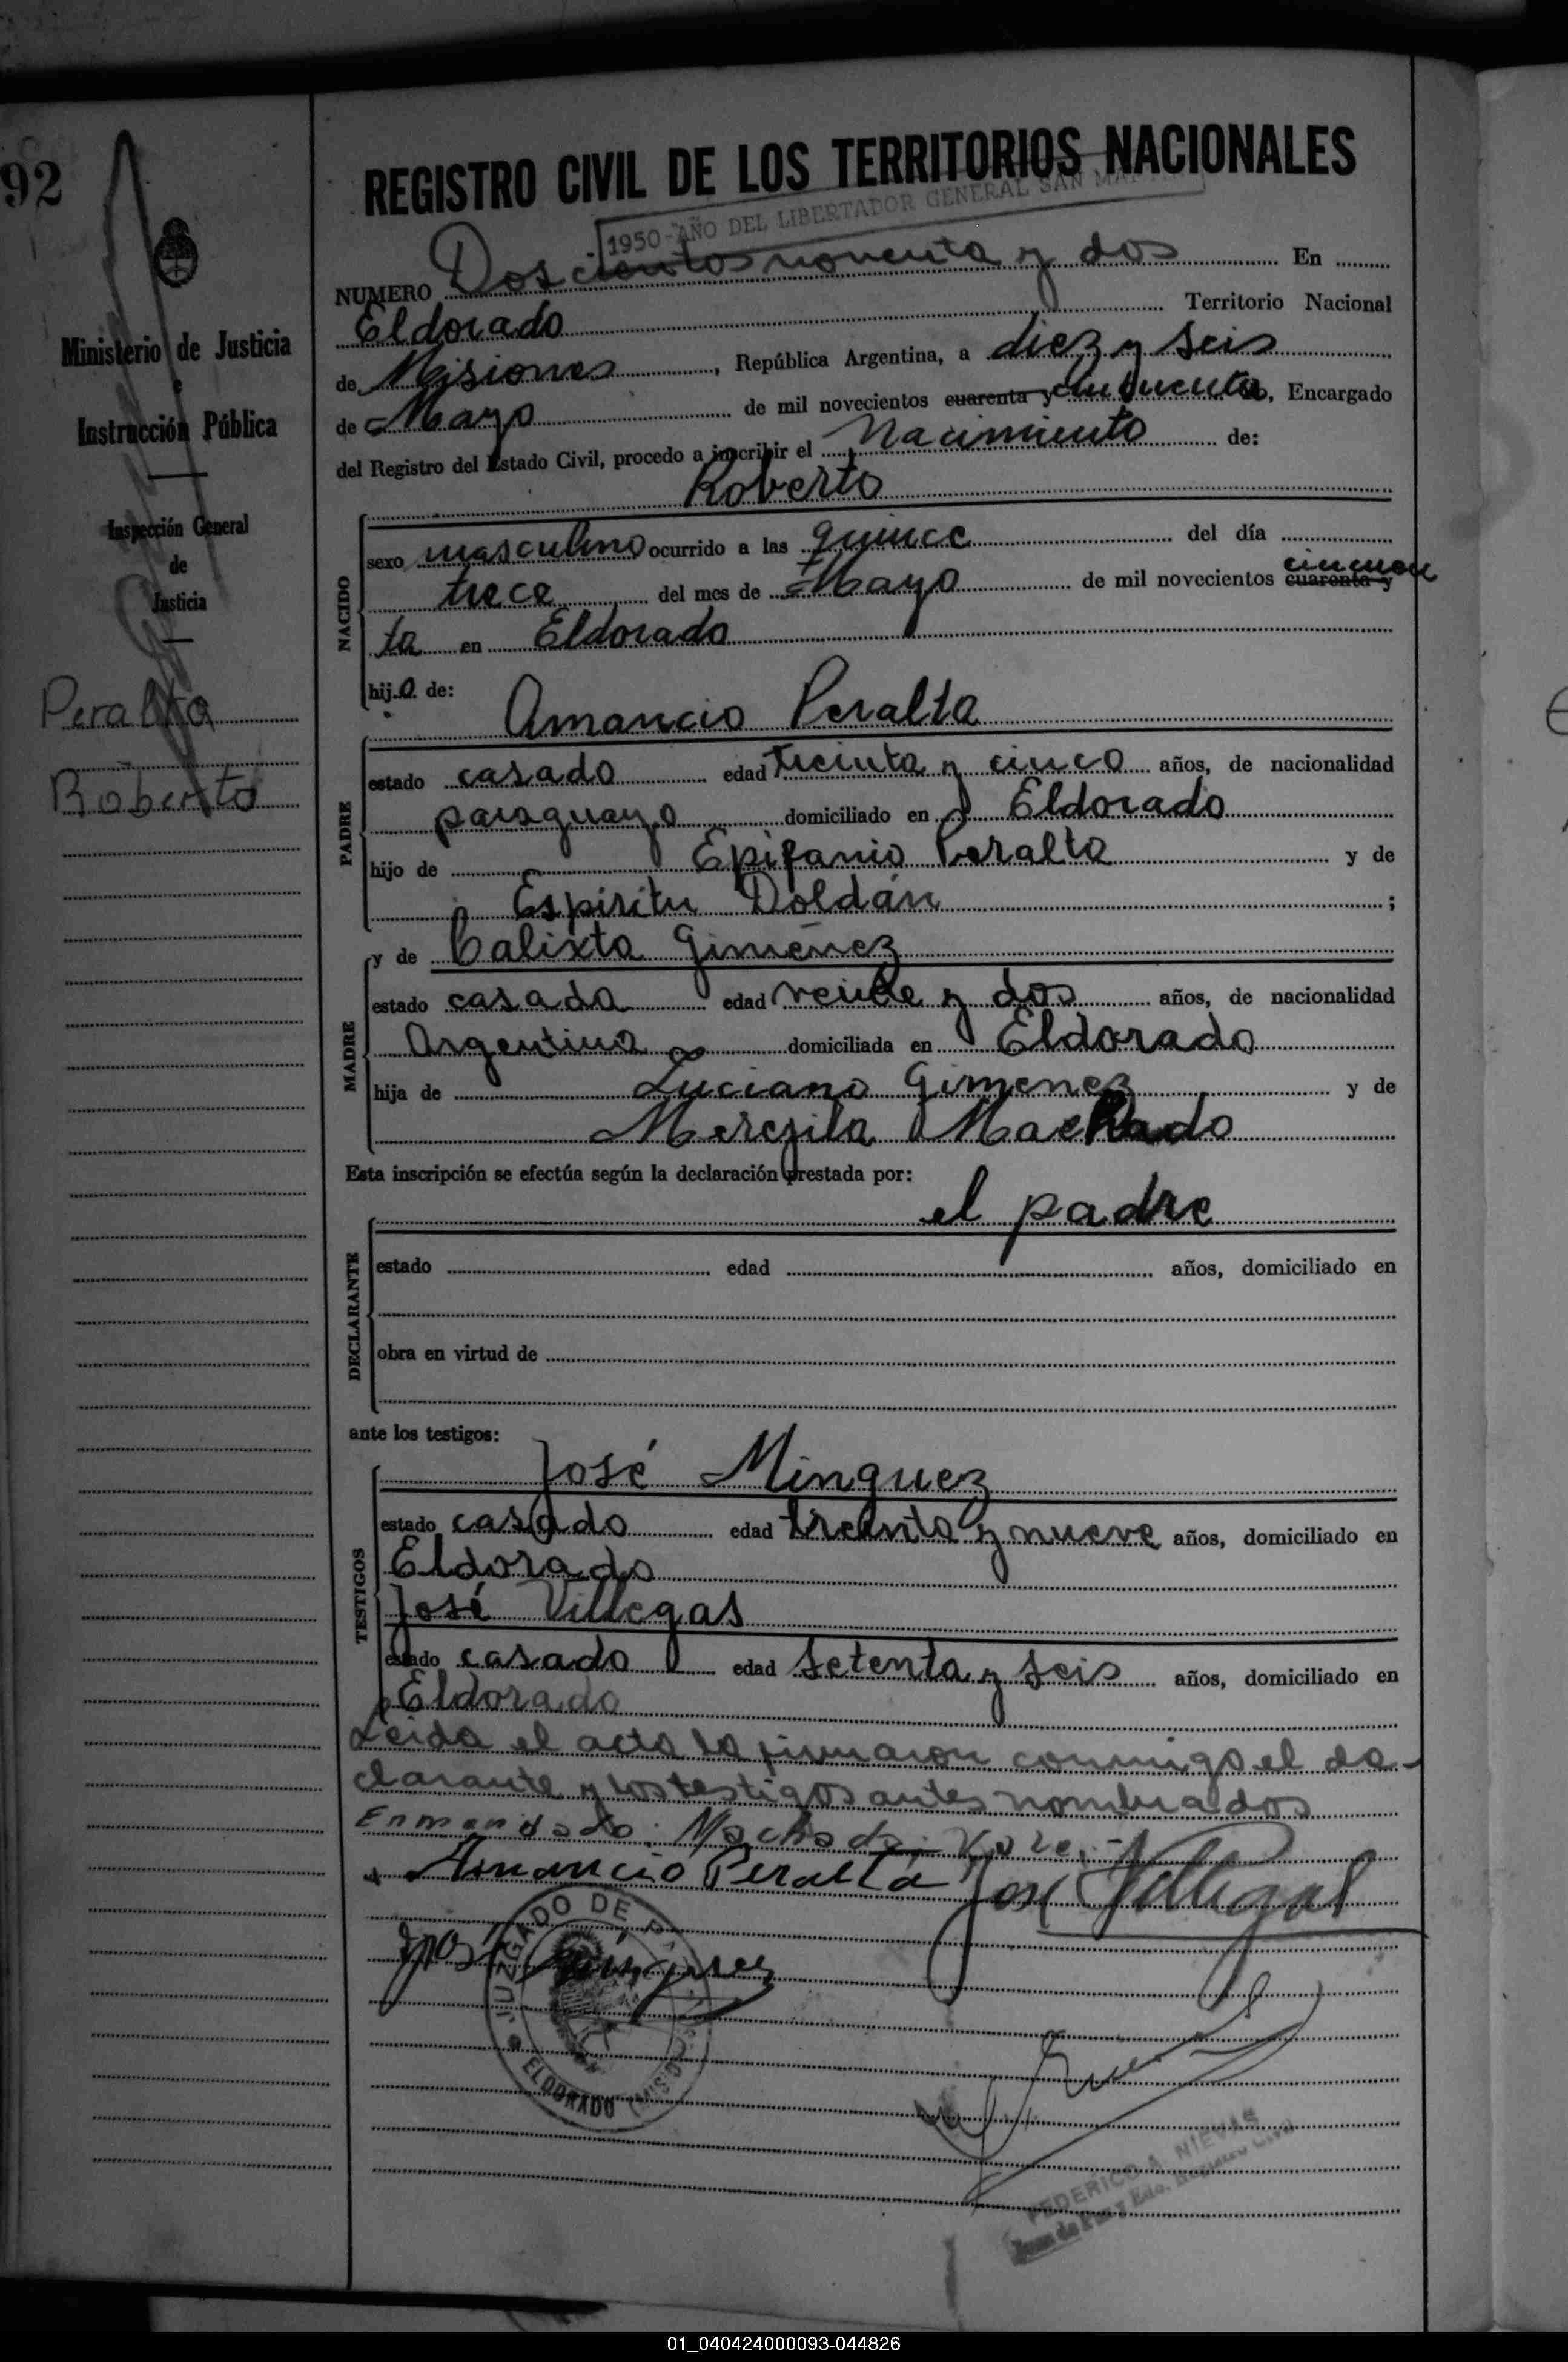 92
Ministerio de Justicia
e
Instrucción Pública
Inspección General
de
Justicia
Peralta
Roberto
REGISTRO CIVIL DE LOS TERRITORIOS NACIONALES
1950-AÑO DEL LIBERTADOR GENERAL SAN
NUMERO Doscientos noventa y dos En
Eldorado Territorio Nacional
de Misiones, República Argentina, a diez y seis
de Mayo de mil novecientos cuarenta y cincuenta, Encargado
del Registro del Estado Civil, procedo a inscribir el Nacimiento de:
Roberto
NACIDO
sexo masculino ocurrido a las quince del día
trece del mes de Mayo de mil novecientos cuarenta y cincuen
ta en Eldorado
hijo de:
PADRE
Amancio Peralta
estado casado edad treinta y cinco años, de nacionalidad
paraguayo domiciliado en Eldorado
hijo de Epifanio Peralta y de
Espiritu Doldán ;
MADRE
y de Calixta Giménez
estado casada edad veinte y dos años, de nacionalidad
Argentina domiciliada en Eldorado
hija de Luciano Gimenez y de
Machado
Esta inscripción se efectúa según la declaración prestada por:
DECLARANTE
el padre
estado edad años, domiciliado en
obra en virtud de
ante los testigos:
TESTIGOS
José Minguez
estado casado edad treinta y nueve años, domiciliado en
Eldorado
José Villegas
estado casado edad setenta y seis años, domiciliado en
Eldorado
Leida el acta la firmaron conmigo el de-
clarante y los testigos antes nombrados
Enmendado: Machado: Vale.-
Amancio Peralta José Villegas
José Minguez
JUZGADO DE P
ELDORADO (MISIONES)
FEDERICO A. NIEVAS
Juez de Paz y Edo. Registro Civil
01_040424000093-044826